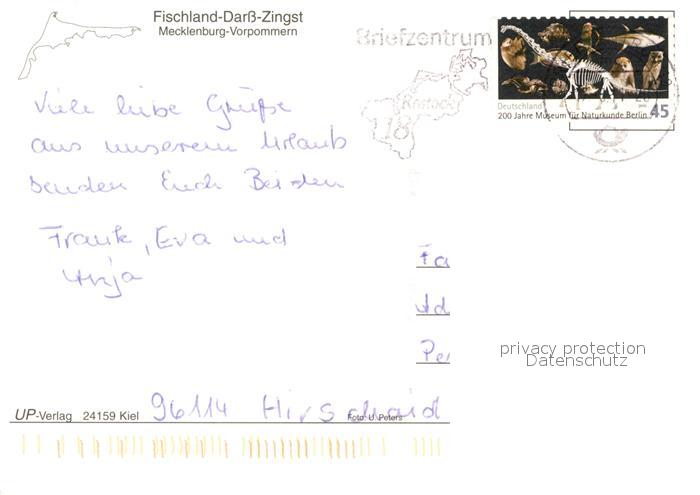 Fischland-Darß-Zingst
Mecklenburg-Vorpommern
Briefzentrum
Rostock
18
Deutschland
200 Jahre Museum für Naturkunde Berlin
45
Viele liebe Grüße
aus unserem Urlaub
senden Euch Beiden
Frank, Eva und
Anja
Fa
Ad
Pe
privacy protection
Datenschutz
96114 Hirschaid
UP-Verlag 24159 Kiel
Foto: U. Peters